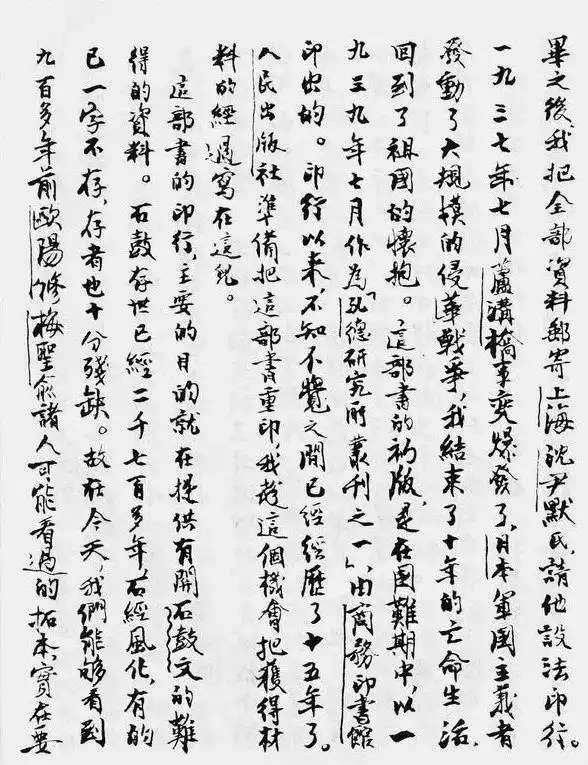 畢之後我把全部資料郵寄上海沈尹默氏，請他設法印行。
一九三七年七月蘆溝橋事變爆發了，日本軍國主義者
發動了大規模的侵華戰爭，我結束了十年的亡命生活，
回到了祖國的懷抱。這部書的初版，是在國難期中，以一
九三九年七月作為「孔德研究所叢刊之一」，由商務印書館
印出的。印行以來，不知不覺之間已經經歷了十五年了。
人民出版社準備把這部書重印，我趁這個機會把獲得材
料的經過寫在這兒。
這部書的印行，主要的目的就在提供有關石鼓文的難
得的資料。石鼓存世已經二千七百多年，石經風化，有的
已一字不存，存者也十分殘缺。故在今天，我們能够看到
九百多年前歐陽修梅聖俞諸人可能看過的拓本，實在要